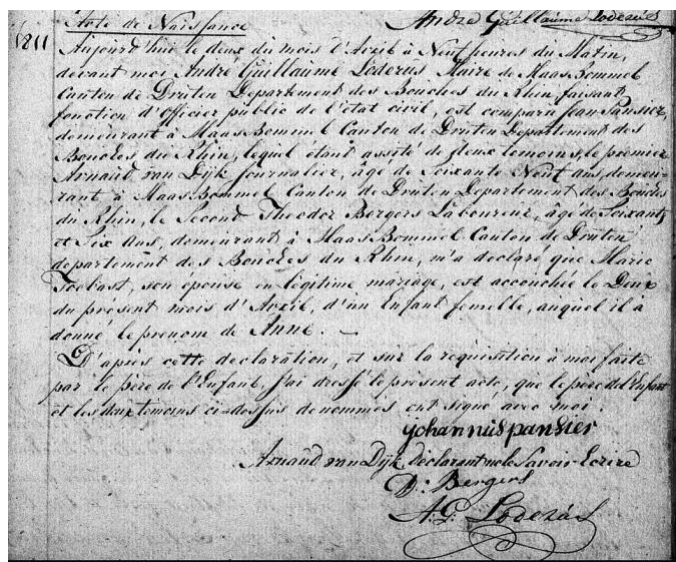 Acte de Naissance
André Guillaume Loderus
1811
Aujourd'hui le deux du mois d'Avril à Neuf heures du Matin,
devant moi André Guillaume Loderus Maire de Maas Bommel
Canton de Druten Departement des Bouches du Rhin, faisant
fonction d'Officier public de l'état civil, est comparu Jean Pansier,
demeurant à Maas Bommel Canton de Druten Departement des
Bouches du Rhin, lequel étant assité de deux temoins, le premier
Arnaud van Dijk journalier, age de Soixante Neuf ans, demeu-
rant à Maas Bommel Canton de Druten Departement des Bouches
du Rhin, le Second Theodor Bergers Laboureur, âgé de Soixante
et Six Ans, demeurant à Maas Bommel Canton de Druten
departement des Bouches du Rhin, m'a declaré que Marie
son épouse en légitime mariage, est accouchée le Deux
du present mois d'Avril, d'un Enfant femelle, auquel il à
donné le prenom de Anne. —
D'après cette declaration, et sur la requisition à moi faite
par le père de l'Enfant, j'ai dressé le present acte, que le père de l'Enfant
et les deux temoins ci-dessus denommés ont signé avec moi.
johannus pansier
Arnaud van Dijk déclarant ne le Savoir Ecrire
D: Bergers
A:G: Loderus